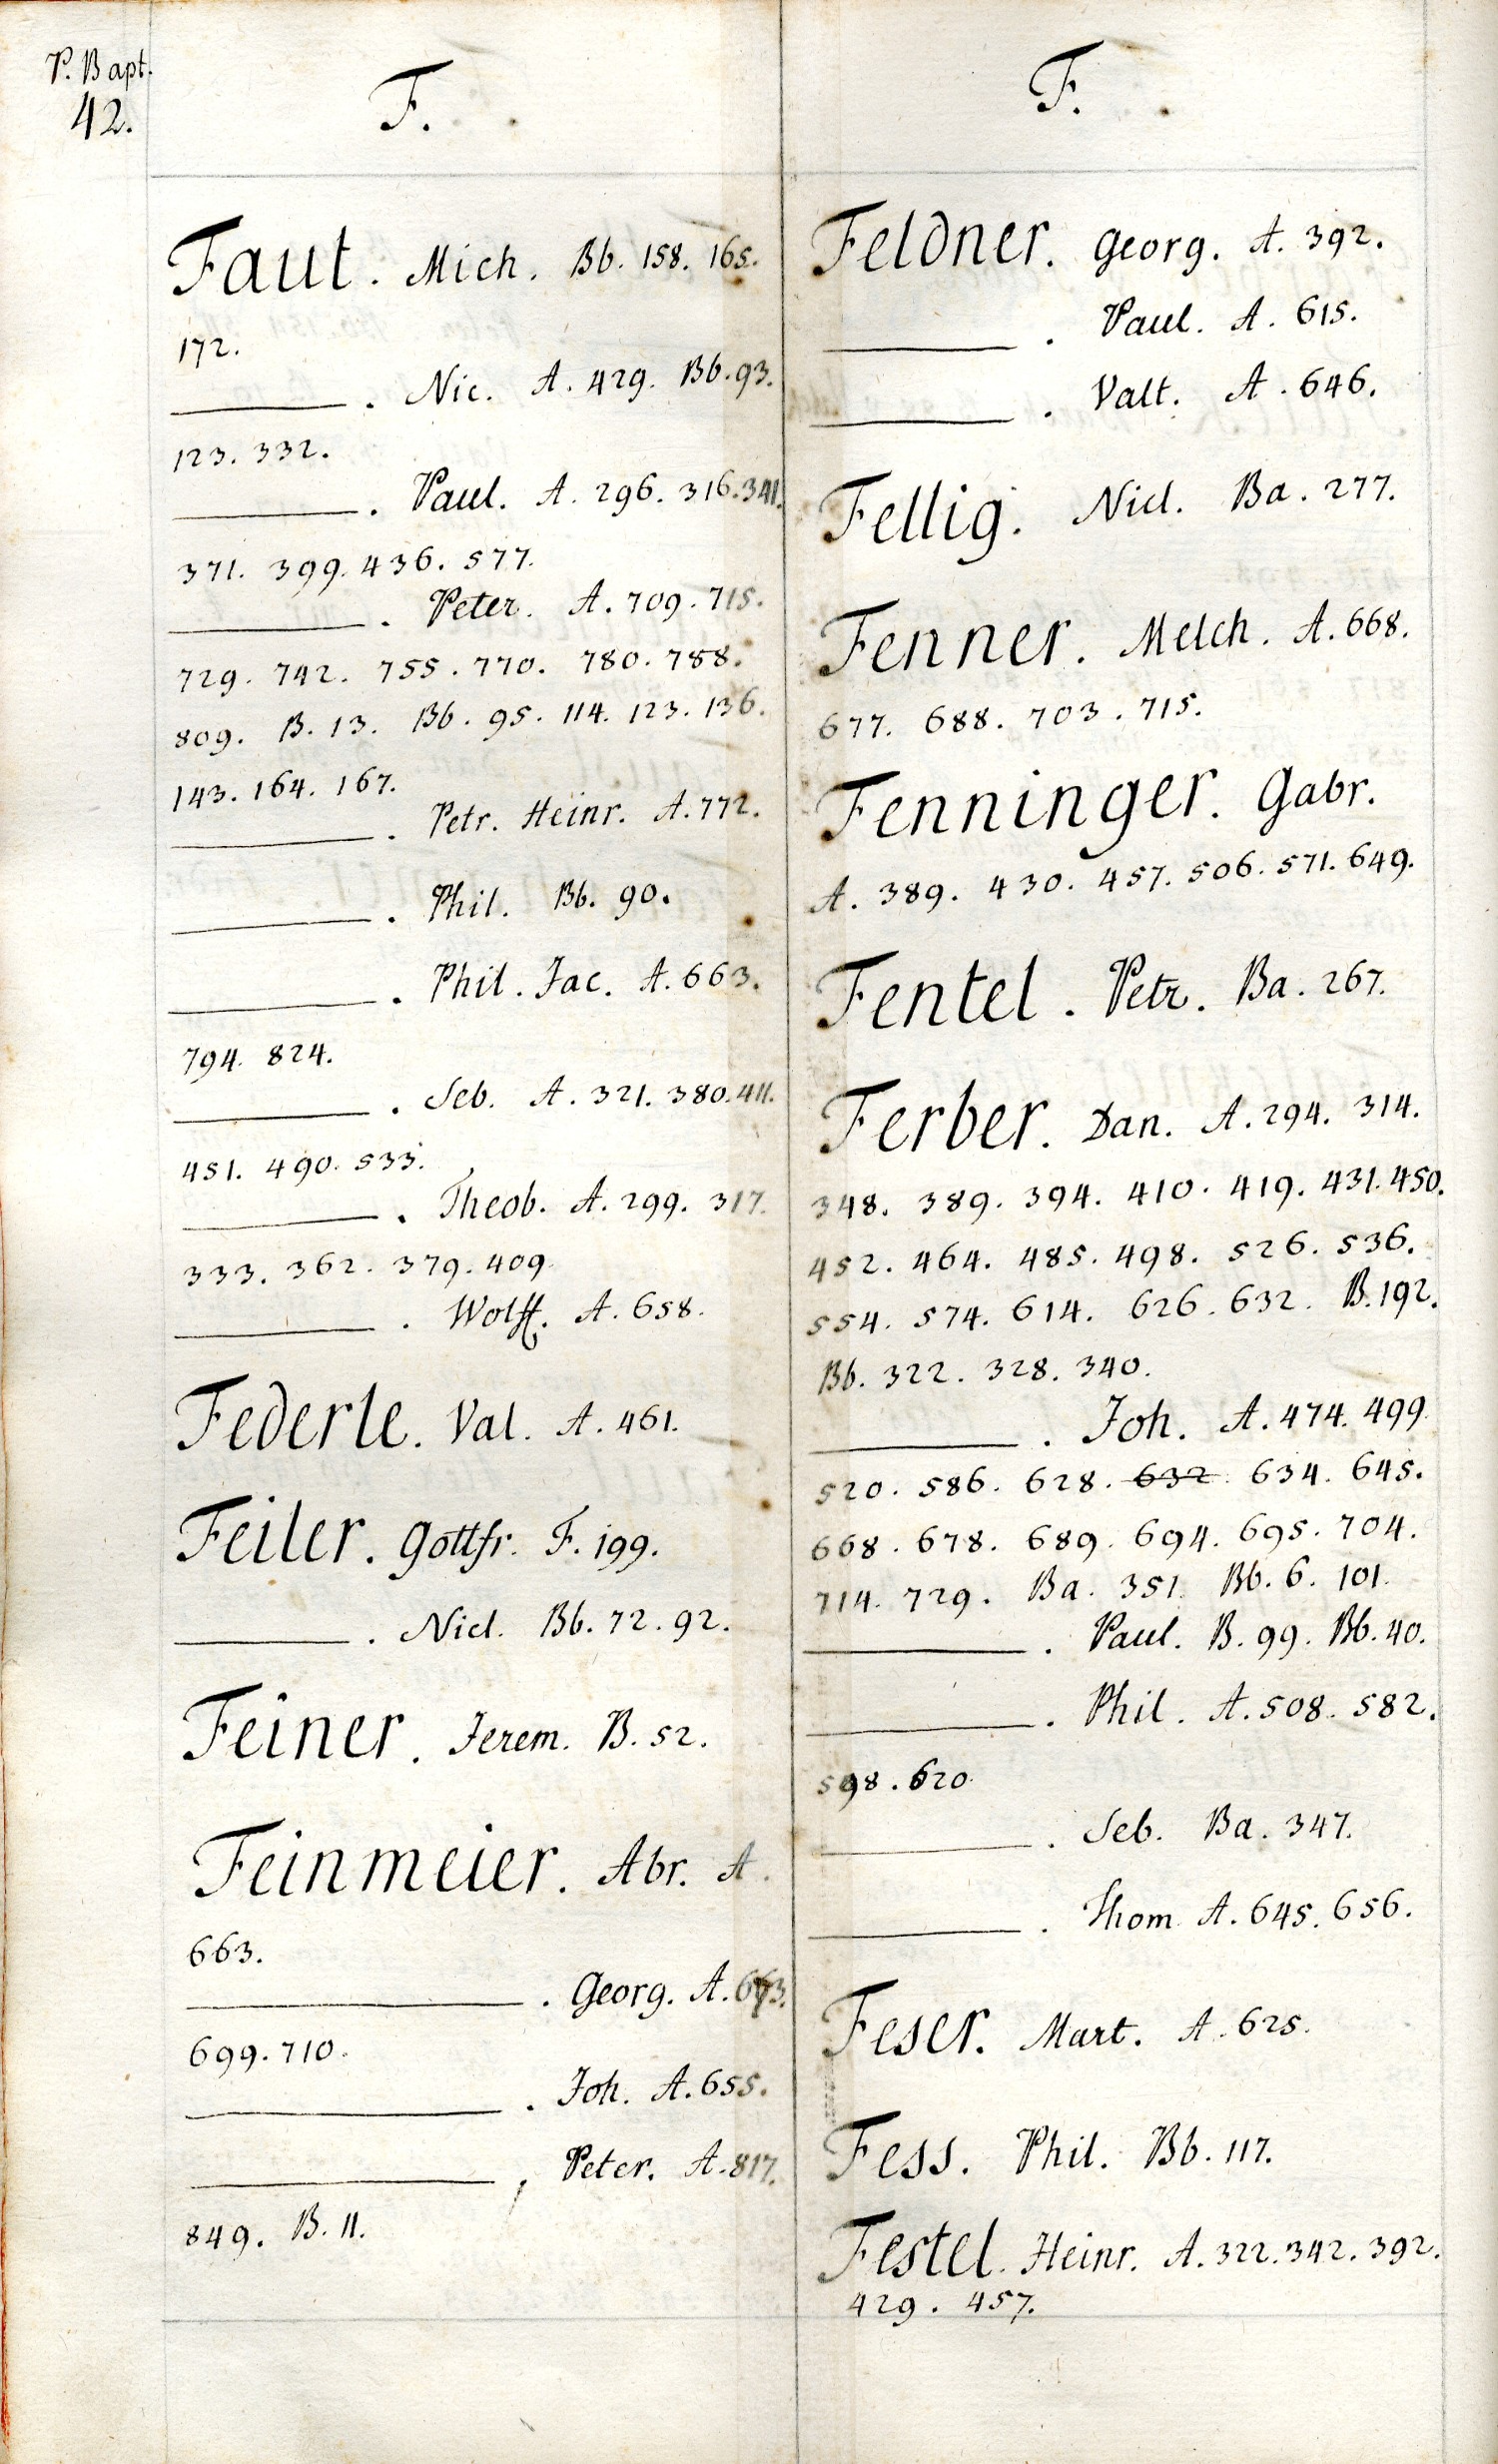 P. Bapt.
42.
F.
Faut. Mich. Bb. 158. 165.
172.
———. Nic. A. 429. Bb. 93.
123. 332.
———. Paul. A. 296. 316. 341.
371. 399. 436. 577.
———. Peter. A. 709. 715.
729. 742. 755. 770. 780. 788.
809. B. 13. Bb. 95. 114. 123. 136.
143. 164. 167.
———. Petr. Heinr. A. 772.
———. Phil. Bb. 90.
———. Phil. Jac. A. 663.
794. 824.
———. Seb. A. 321. 380. 411.
451. 490. 533.
———. Theob. A. 299. 317.
333. 362. 379. 409.
———. Wolff. A. 658.
Federle. Val. A. 461.
Feiler. Gottfr. F. 199.
———. Nicl. Bb. 72. 92.
Feiner. Jerem. B. 52.
Feinmeier. Abr. A.
663.
———. Georg. A.
699. 710.
———. Joh. A. 655.
———, Peter. A. 817.
849. B. 11.
F.
Feldner. Georg. A. 392.
———. Paul. A. 615.
———. Valt. A. 646.
Fellig. Nicl. Ba. 277.
Fenner. Melch. A. 668.
677. 688. 703. 715.
Fenninger. Gabr.
A. 389. 430. 457. 506. 571. 649.
Fentel. Petr. Ba. 267.
Ferber. Dan. A. 294. 314.
348. 389. 394. 410. 419. 431. 450.
452. 464. 485. 498. 526. 536.
554. 574. 614. 626. 632. B. 192.
Bb. 322. 328. 340.
———. Joh. A. 474. 499
520. 586. 628. 632 634. 645.
668. 678. 689. 694. 695. 704.
714. 729. Ba. 351. Bb. 6. 101.
———. Paul. B. 99. Bb. 40.
———. Phil. A. 508. 582.
598. 620.
———. Seb. Ba. 347.
———. Thom A. 645. 656.
Feser. Mart. A. 625.
Fess. Phil. Bb. 117.
Festel. Heinr. A. 322. 342. 392.
429. 457.